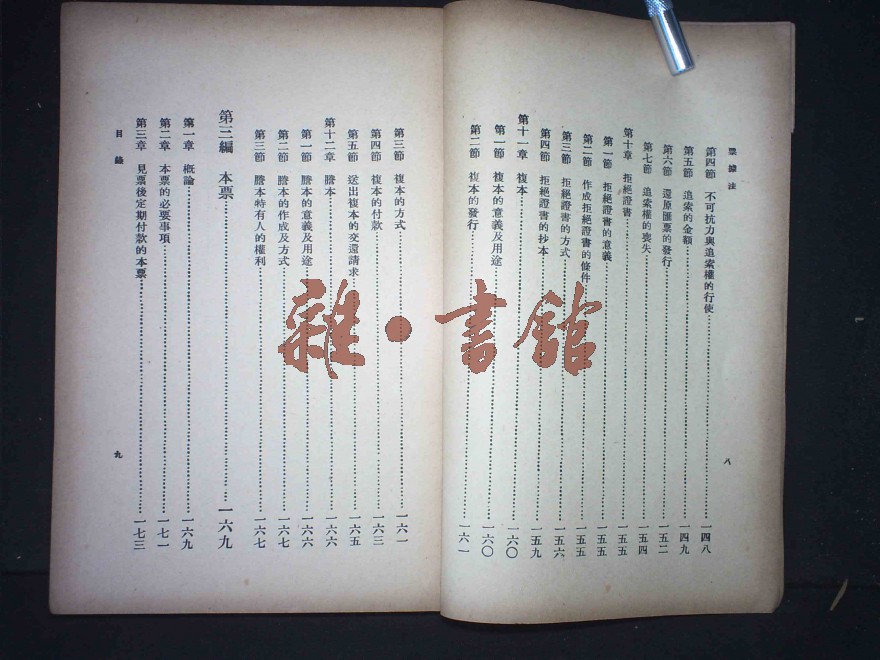 票據法
第四節 不可抗力與追索權的行使……一四八
第五節 追索的金額……一四九
第六節 還原匯票的發行……一五二
第七節 追索權的喪失……一五四
第十章 拒絕證書……一五五
第一節 拒絕證書的意義……一五五
第二節 作成拒絕證書的條件……一五五
第三節 拒絕證書的方式……一五六
第四節 拒絕證書的抄本……一五九
第十一章 複本……一六〇
第一節 複本的意義及用途……一六〇
第二節 複本的發行……一六一
八
第三節 複本的方式……一六一
第四節 複本的付款……一六三
第五節 送出複本的交還請求……一六五
第十二章 謄本……一六六
第一節 謄本的意義及用途……一六六
第二節 謄本的作成及方式……一六七
第三節 謄本特有人的權利……一六七
第三編 本票……一六九
第一章 概論……一六九
第二章 本票的必要事項……一七一
第三章 見票後定期付款的本票……一七三
目錄
九
雜·書館